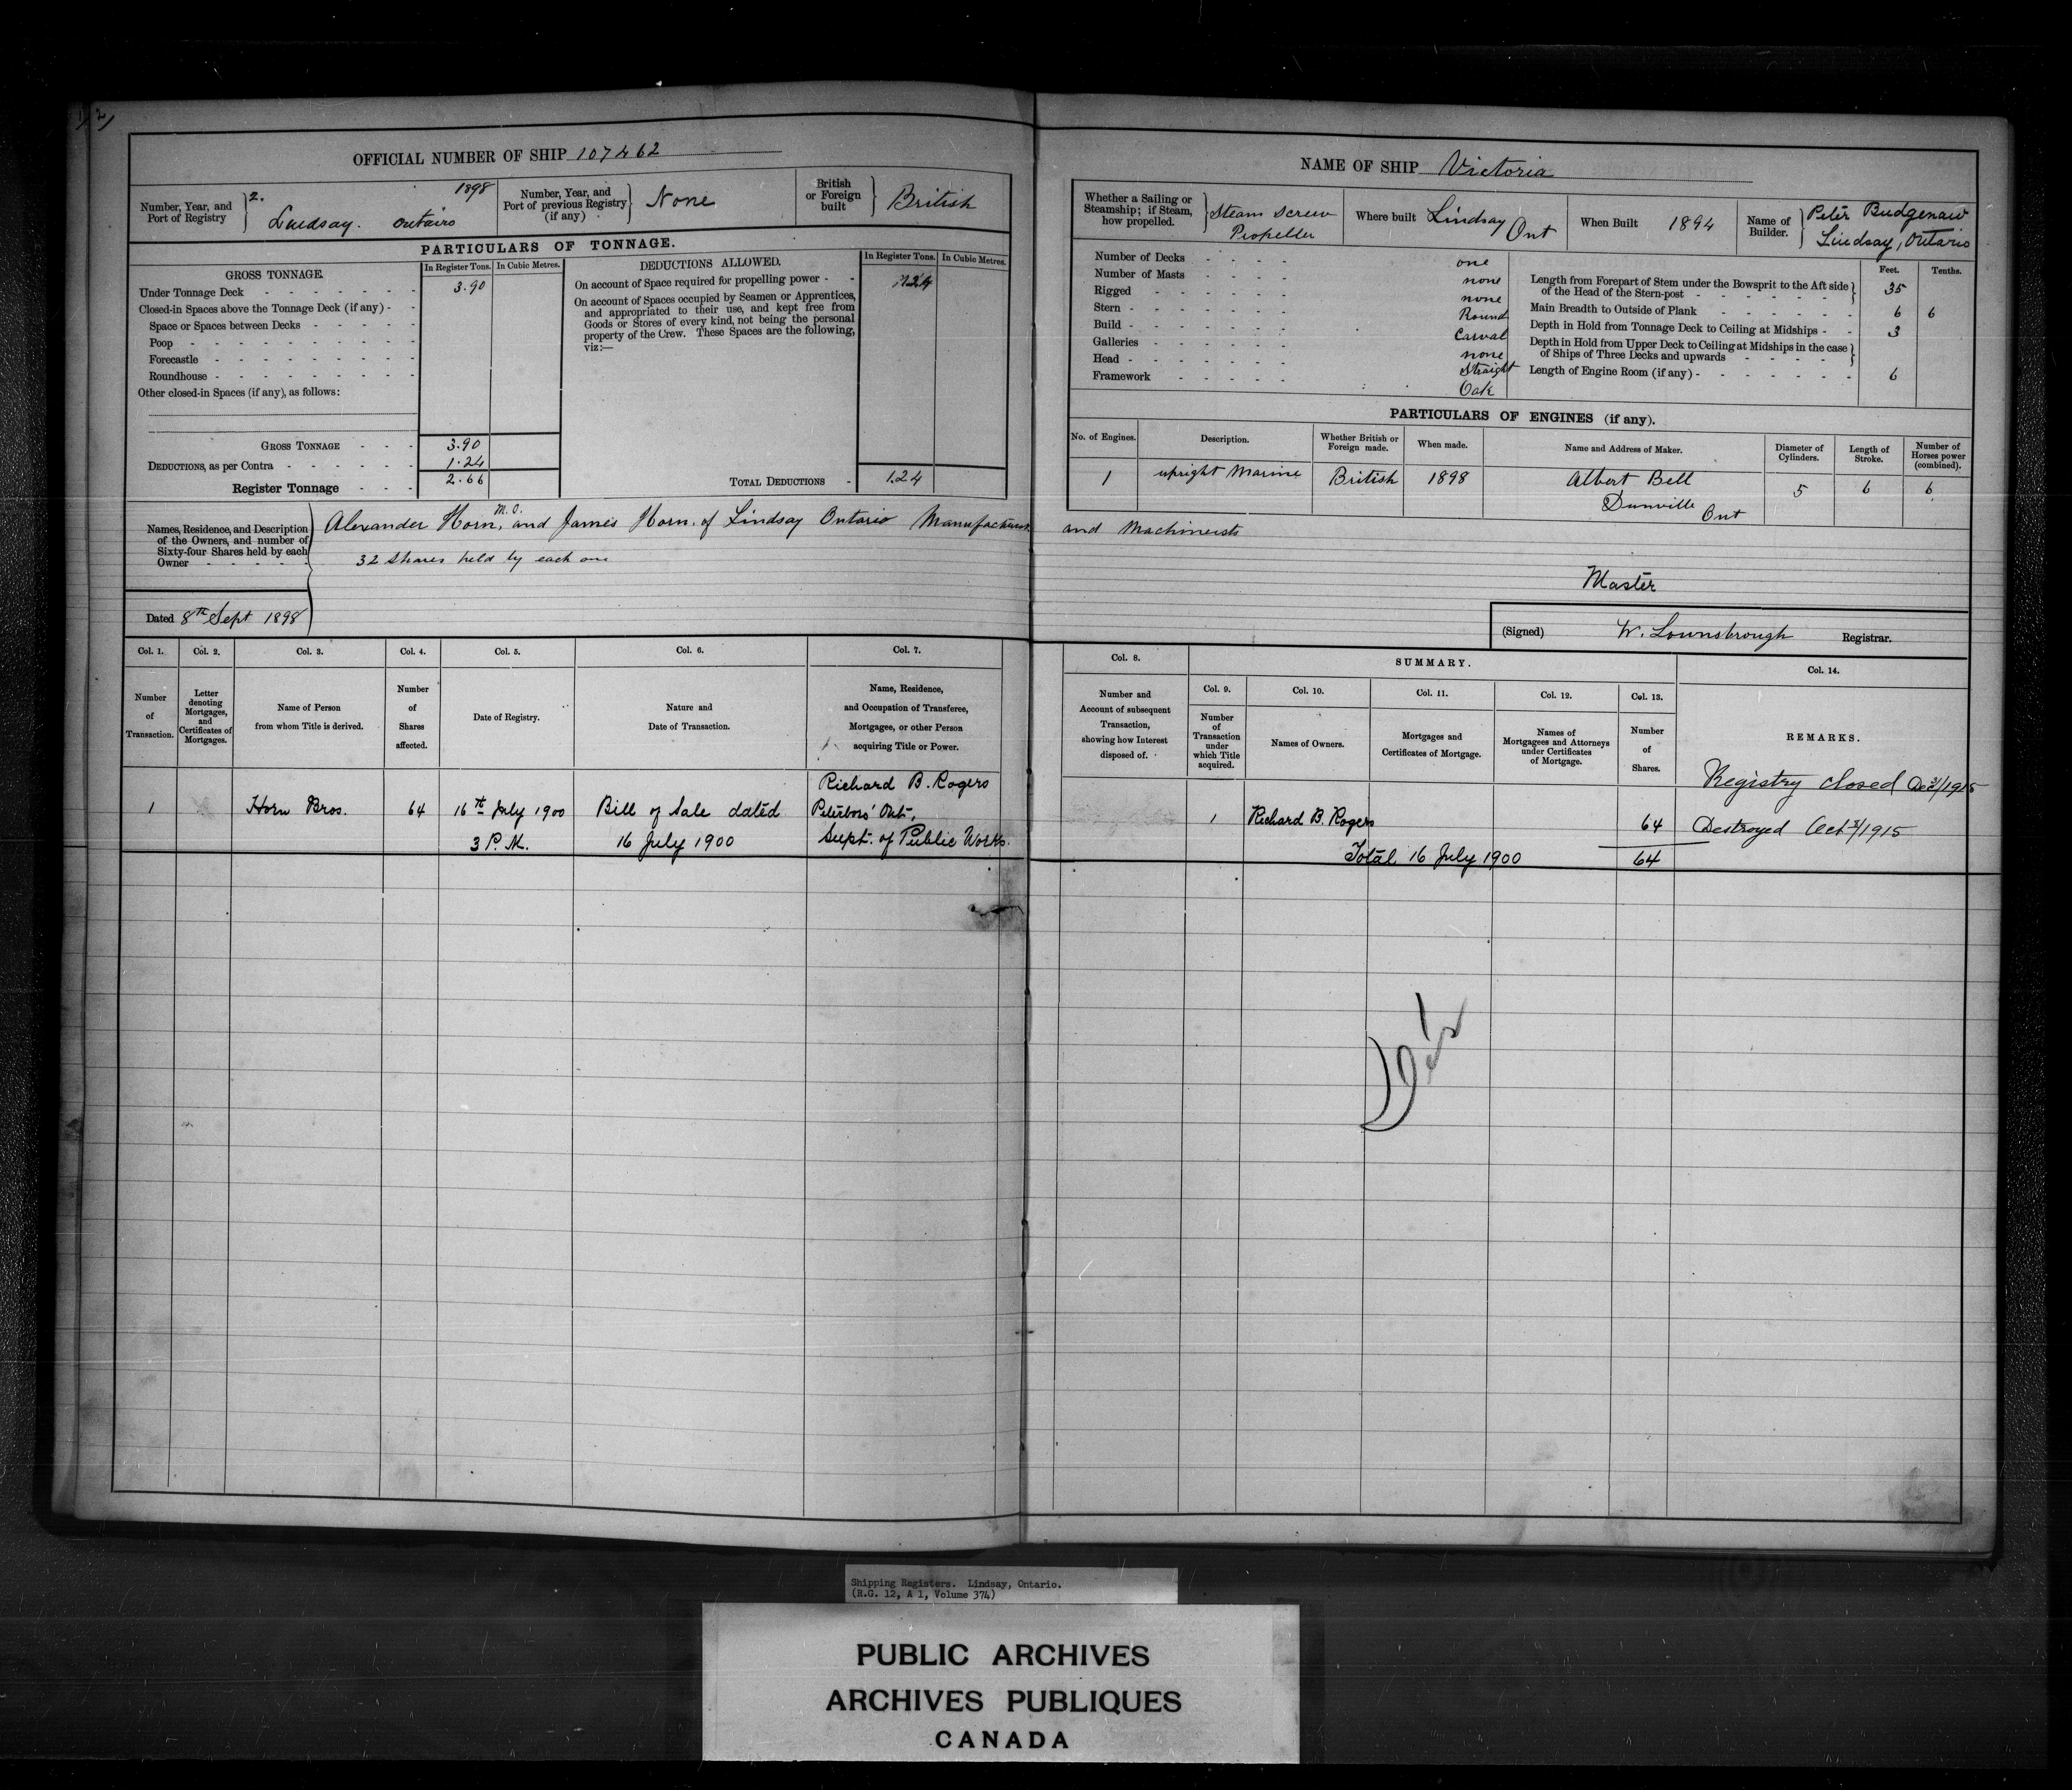 OFFICIAL NUMBER OF SHIP 107462
Number, Year, and Port of Registry } 2. 1898 Lindsay. Ontairo
Number, Year, and Port of previous Registry (if any) } None
British or Foreign built } British
PARTICULARS OF TONNAGE.
GROSS TONNAGE. In Register Tons. In Cubic Metres.
Under Tonnage Deck 3.90
Closed-in Spaces above the Tonnage Deck (if any)
Space or Spaces between Decks
Poop
Forecastle
Roundhouse
Other closed-in Spaces (if any), as follows:
GROSS TONNAGE 3.90
DEDUCTIONS, as per Contra 1.24
Register Tonnage 2.66
DEDUCTIONS ALLOWED. In Register Tons. In Cubic Metres.
On account of Space required for propelling power 1.24
On account of Spaces occupied by Seamen or Apprentices,
and appropriated to their use, and kept free from
Goods or Stores of every kind, not being the personal
property of the Crew. These Spaces are the following,
viz:—
TOTAL DEDUCTIONS 1.24
NAME OF SHIP Victoria
Whether a Sailing or Steamship; if Steam, how propelled. } Steam Screw Propeller
Where built Lindsay Ont
When Built 1894
Name of Builder. } Peter Budgenaw Lindsay, Ontario
Number of Decks one
Number of Masts none
Rigged none
Stern Round
Build Carval
Galleries none
Head Straight
Framework Oak
Feet. Tenths.
Length from Forepart of Stem under the Bowsprit to the Aft side of the Head of the Stern-post 35
Main Breadth to Outside of Plank 6 6
Depth in Hold from Tonnage Deck to Ceiling at Midships 3
Depth in Hold from Upper Deck to Ceiling at Midships in the case of Ships of Three Decks and upwards
Length of Engine Room (if any) 6
PARTICULARS OF ENGINES (if any).
No. of Engines. Description. Whether British or Foreign made. When made. Name and Address of Maker. Diameter of Cylinders. Length of Stroke. Number of Horses power (combined).
1 upright Marine British 1898 Albert Bell Dunville Ont 5 6 6
Names, Residence, and Description of the Owners, and number of Sixty-four Shares held by each Owner
M. O.
Alexander Horn, and James Horn. of Lindsay Ontario Manufacturers and Machineists
32 Shares held by each one
Master
Dated 8th Sept 1898
(Signed) W. Lownsbrough Registrar.
Col. 1. Col. 2. Col. 3. Col. 4. Col. 5. Col. 6. Col. 7.
Number of Transaction.
Letter denoting Mortgages, and Certificates of Mortgages.
Name of Person from whom Title is derived.
Number of Shares affected.
Date of Registry.
Nature and Date of Transaction.
Name, Residence, and Occupation of Transferee, Mortgagee, or other Person acquiring Title or Power.
Col. 8. SUMMARY. Col. 14.
Col. 9. Col. 10. Col. 11. Col. 12. Col. 13.
Number and Account of subsequent Transaction, showing how Interest disposed of.
Number of Transaction under which Title acquired.
Names of Owners.
Mortgages and Certificates of Mortgage.
Names of Mortgagees and Attorneys under Certificates of Mortgage.
Number of Shares.
REMARKS.
1 Horn Bros. 64 16th July 1900 3 P.M. Bill of Sale dated 16 July 1900
Richard B. Rogers
Peterboro' Ont,
Supt. of Public Works.
1 Richard B. Rogers 64
Total 16 July 1900 64
Registry closed Dec 31/1915
Destroyed Oct /1915
Shipping Registers. Lindsay, Ontario.
(R.G. 12, A 1, Volume 374)
PUBLIC ARCHIVES
ARCHIVES PUBLIQUES
CANADA